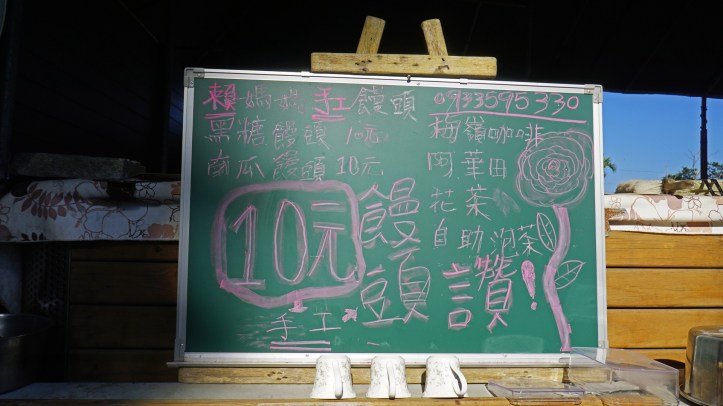 賴媽媽手工饅頭
黑糖饅頭 10元
南瓜饅頭 10元
0933595330
梅嶺咖啡
花茶
自助泡茶
10元
手工
饅頭
讚!